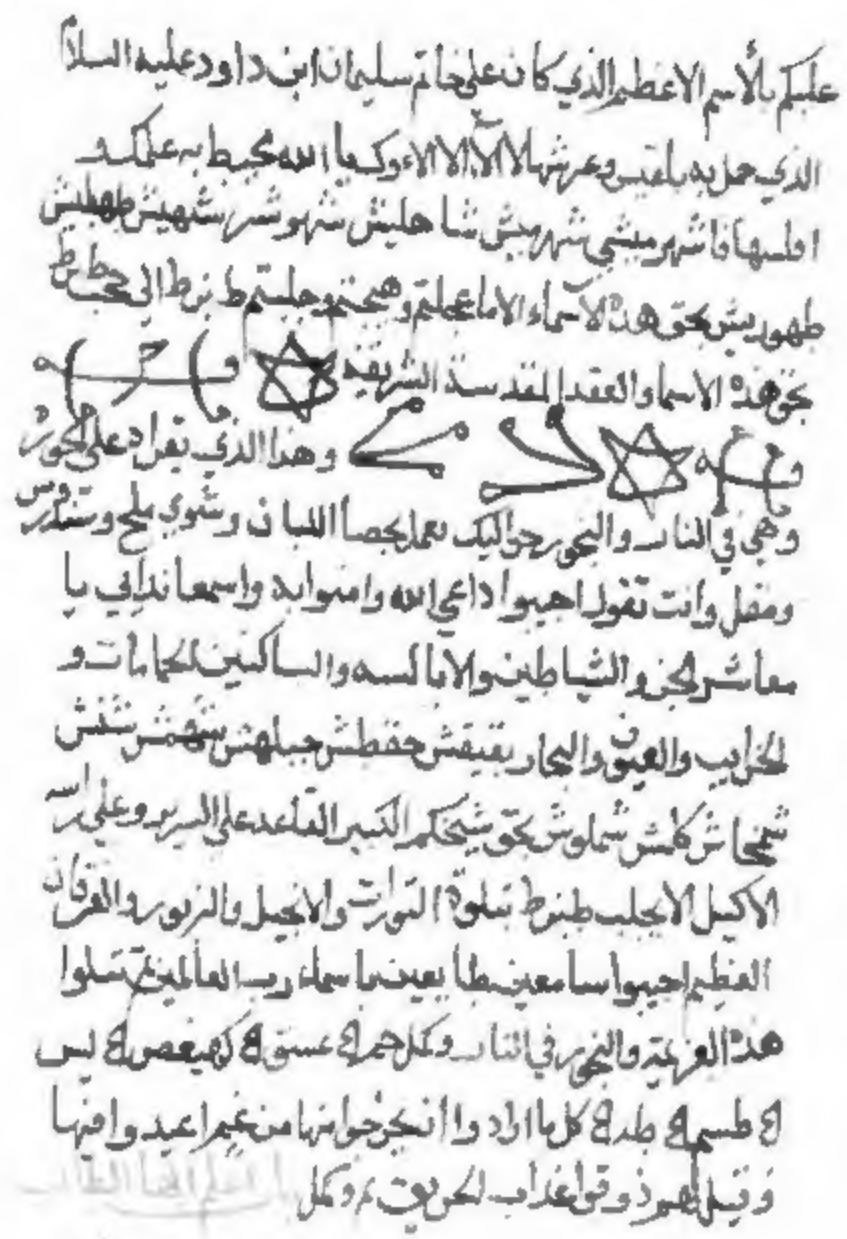 عليكم بالأسم الاعظم الذي كان على خاتم سليمان ابن داود عليه السلام
الذي حمل به بلقيس وعرشها الا الاء وكما الله محيط به علمك و
شهرميش شاهليش شهوش شهيش طهليش
طهوريش بحق هذه الاسماء الاما عجلتم وهيجتم وجلبتم ط نرط الى محبة ط نرط
بحق هذه الاسما والعقد المقدسة الشريفة
وهذا الذي يقراد على البخور
وهي في النار والبخور حواليك بعمد بحصا اللبان وشوي ملح وسندروس
ومقل وانت تقول اجيبوا داعي الله وامنوا به واسمعا نداي يا
معاشر الجن والشياطين والابالسه والساكنين الحمامات و
الخرايب والعيون والبحار بقيقش حقطش جبلهش شهمش شنش
شمخاش كلمش شملوش بحق شيخكم الكبير القاعد على السرير وعلى راسه
الاكيل الا يجلب ط نرط بتلوة التورات والانجيل والزبور والفرقان
العظيم اجيبوا سامعين طايعين باسماء رب العالمين ثم تتلوا
هذه العزيمة والبخور في النار وكل حم ق عسق ق كهيعص ق يس
ق طسم ق طه ق كل ما ارادوا ان يخرجوا منها من غم اعيدوا فيها
وقيل لهم ذوقوا عذاب الحريق تم وكمل